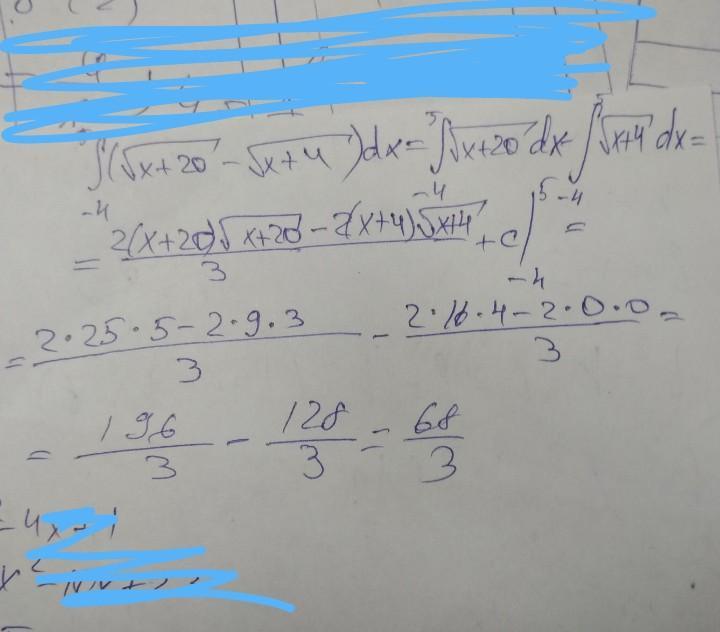 5∫-4 (√x+20 - √x+4) dx = 5∫-4 √x+20 dx - 5∫-4 √x+4 dx =
= 2(x+20)√x+20 - 2(x+4)√x+4 / 3 + c |5 -4 =
= 2·25·5 - 2·9·3 / 3 - 2·16·4 - 2·0·0 / 3 =
= 196/3 - 128/3 = 68/3